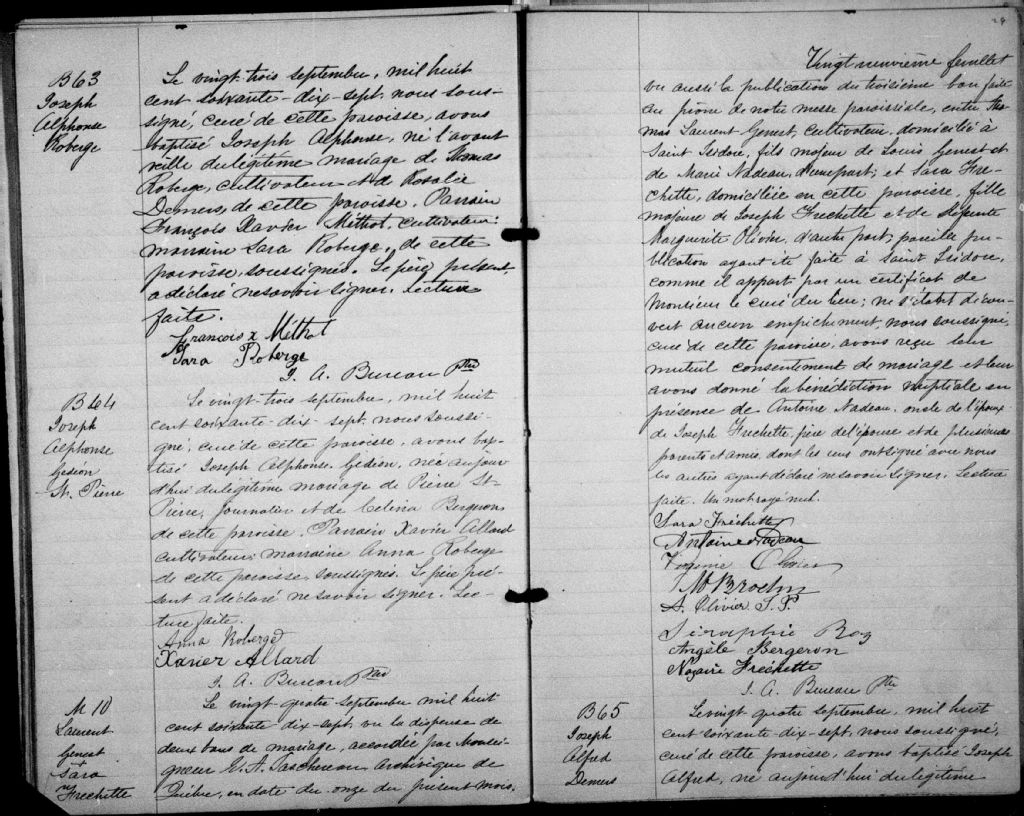 B 63
Joseph
Alphonse
Roberge
Le vingt-trois septembre, mil huit
cent soixante-dix-sept, nous sous-
signé, curé de cette paroisse, avons
baptisé Joseph Alphonse, né l'avant
veille du légitime mariage de Thomas
Roberge, cultivateur et de Rosalie
Demers, de cette paroisse. Parrain
François Xavier Méthot, cultivateur;
marraine Sara Roberge, de cette
paroisse, soussignés. Le père présent
a déclaré ne savoir signer. Lecture
faite.
Francois x Méthot
Sara Roberge
J. A. Bureau Ptre
B 64
Joseph
Alphonse
Gédéon
St. Pierre
Le vingt-trois septembre, mil huit
cent soixante-dix-sept, nous soussi-
gné, curé de cette paroisse, avons bap-
tisé Joseph Alphonse Gédéon, né aujour
d'hui du légitime mariage de Pierre St-
Pierre, journalier et de Celina Bergeron
de cette paroisse. Parrain Xavier Allard
cultivateur; marraine Anna Roberge
de cette paroisse, soussignés. Le père pré-
sent a déclaré ne savoir signer. Lec-
ture faite.
Anna Roberge
Xavier Allard
J. A. Bureau Ptre
M 10
Laurent
Genest
&
Sara
Frechette
Le vingt-quatre septembre mil huit
cent soixante-dix-sept, vu la dispense de
deux bans de mariage, accordée par Monsei-
gneur E. A. Taschereau Archevêque de
Québec, en date du onze du présent mois,
29
Vingt neuvième feuillet
vu aussi la publication du troisième ban faite
au prône de notre messe paroissiale, entre Tho-
mas Laurent Genest, cultivateur, domicilié à
Saint Isidore, fils majeur de Louis Genest et
de Marie Nadeau, d'une part; et Sara Fre-
chette, domiciliée en cette paroisse, fille
majeure de Joseph Frechette et de défunte
Marguerite Olivier, d'autre part; pareille pu-
blication ayant été faite à Saint Isidore,
comme il appert par un certificat de
Monsieur le curé du lieu; ne s'étant décou-
vert aucun empêchement, nous soussigné,
curé de cette paroisse, avons reçu leur
mutuel consentement de mariage et leur
avons donné la bénédiction nuptiale en
présence de Antoine Nadeau, oncle de l'époux
de Joseph Frechette, père de l'épouse et de plusieurs
parents et amis, dont les uns ont signé avec nous
les autres ayant déclaré ne savoir signer. Lecture
faite. Un mot rayé nul.
Sara Fréchette
Antoine Nadeau
Olivier
A. Olivier J. P.
Séraphie Roy
Angèle Bergeron
Nazaire Fréchette
J. A. Bureau Ptre
B 65
Joseph
Alfred
Demers
Le vingt quatre septembre, mil huit
cent soixante-dix-sept, nous soussigné,
curé de cette paroisse, avons baptisé Joseph
Alfred, né aujourd'hui du légitime